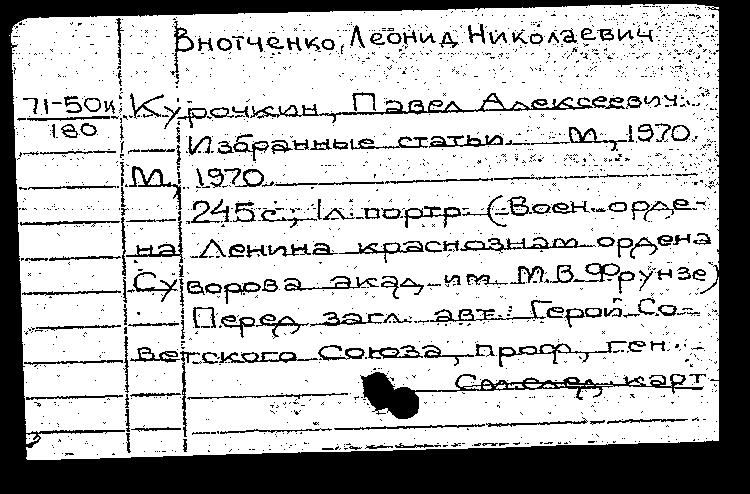 Внотченко, Леонид Николаевич
71-50и Курочкин, Павел Алексеевич.
180
Избранные статьи. М., 1970.
М., 1970.
245 с.; 1 л. портр. (Воен. орде-
на Ленина краснознам ордена
Суворова акад. им. М.В.Фрунзе)
Перед загл. авт.: Герой Со-
ветского Союза, проф., ген.
См. след. карт